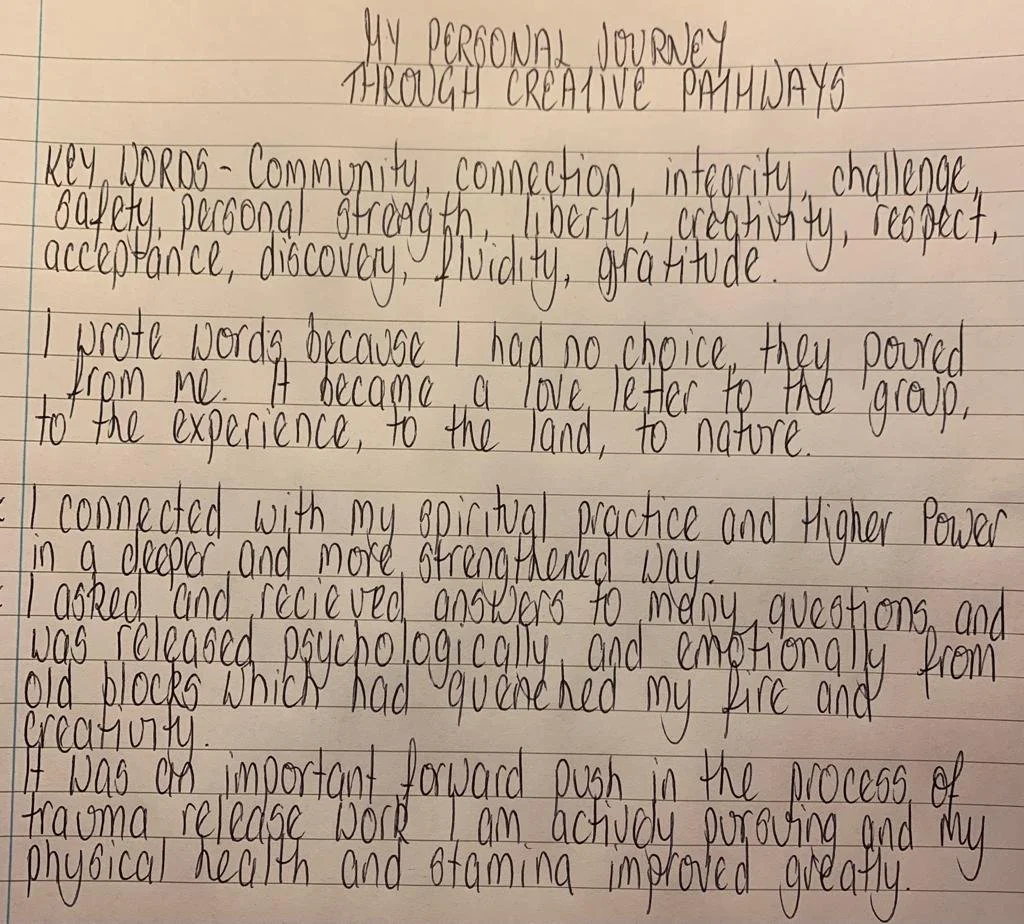 MY PERSONAL JOURNEY
THROUGH CREATIVE PATHWAYS
KEY WORDS - Community, connection, integrity, challenge,
safety, personal strength, liberty, creativity, respect,
acceptance, discovery, fluidity, gratitude.
I wrote words because I had no choice, they poured
from me. It became a love letter to the group,
to the experience, to the land, to nature.
I connected with my spiritual practice and Higher Power
in a deeper and more strengthened way.
I asked and recieved answers to many questions and
was released psychologically and emotionally from
old blocks which had quenched my fire and
creativity.
It was an important forward push in the process of
trauma release work I am actively pursuing and my
physical health and stamina improved greatly.